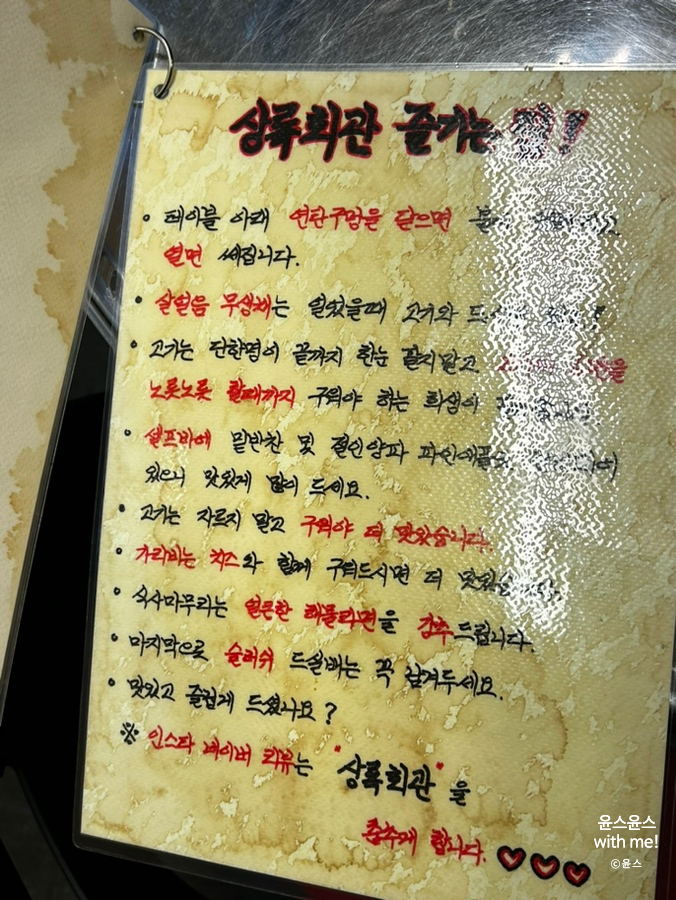 상록회관 즐기는
• 테이블 아래 연탄구멍을 닫으면
열면 쎄집니다.
• 살얼음 무생채는 얼었을때 고기와
• 고기는 단한명이 끝까지 한눈 팔지말고
노릇노릇 할때까지 구워야 하는 희생이
• 셀프바에 밑반찬 및 절인양파 파인애플
있으니 맛있게 많이 드세요.
• 고기는 자르지 말고 구워야 더 맛있습니다.
• 가리비는 치즈와 함께 구워드시면 더
• 식사마무리는 얼큰한 해물라면을 강추드립니다.
• 마지막으로 슬러쉬 드실배는 꼭 남겨두세요.
• 맛있고 즐겁게 드셨나요?
※ 인스타 네이버 리뷰는 "상록회관"을
춤추게 합니다.
윤스윤스
with me!
©윤스